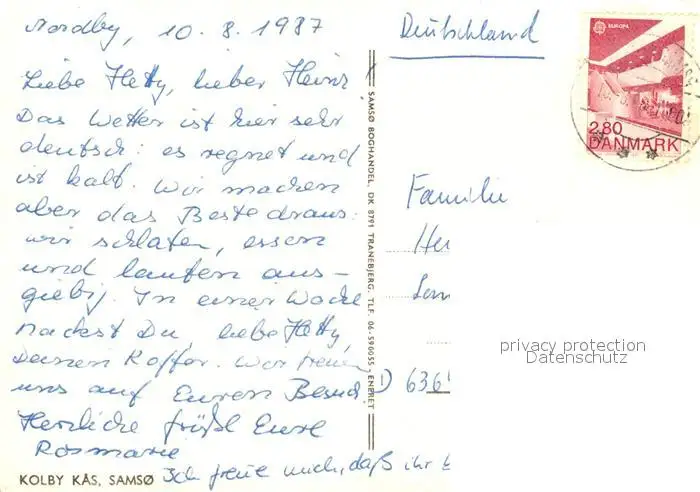 Nordby, 10.8.1987
Liebe Hetty, lieber Heinz
Das Wetter ist hier sehr
deutsch: es regnet und
ist kalt. Wir machen
aber das Beste draus:
wir schlafen, essen
und laufen aus-
giebig. In einer Woche
packst Du, liebe Hetty,
Deinen Koffer. Wir freuen
uns auf Euren Besuch
Herzliche Grüße Eure
Rosmarie
Ich freue mich, daß ihr
KOLBY KÅS, SAMSØ
SAMSØ BOGHANDEL, DK 8791 TRANEBJERG. TLF. 06-590055 - ENERET
Deutschland
EUROPA
2.80
DANMARK
Familie
D 636
privacy protection
Datenschutz